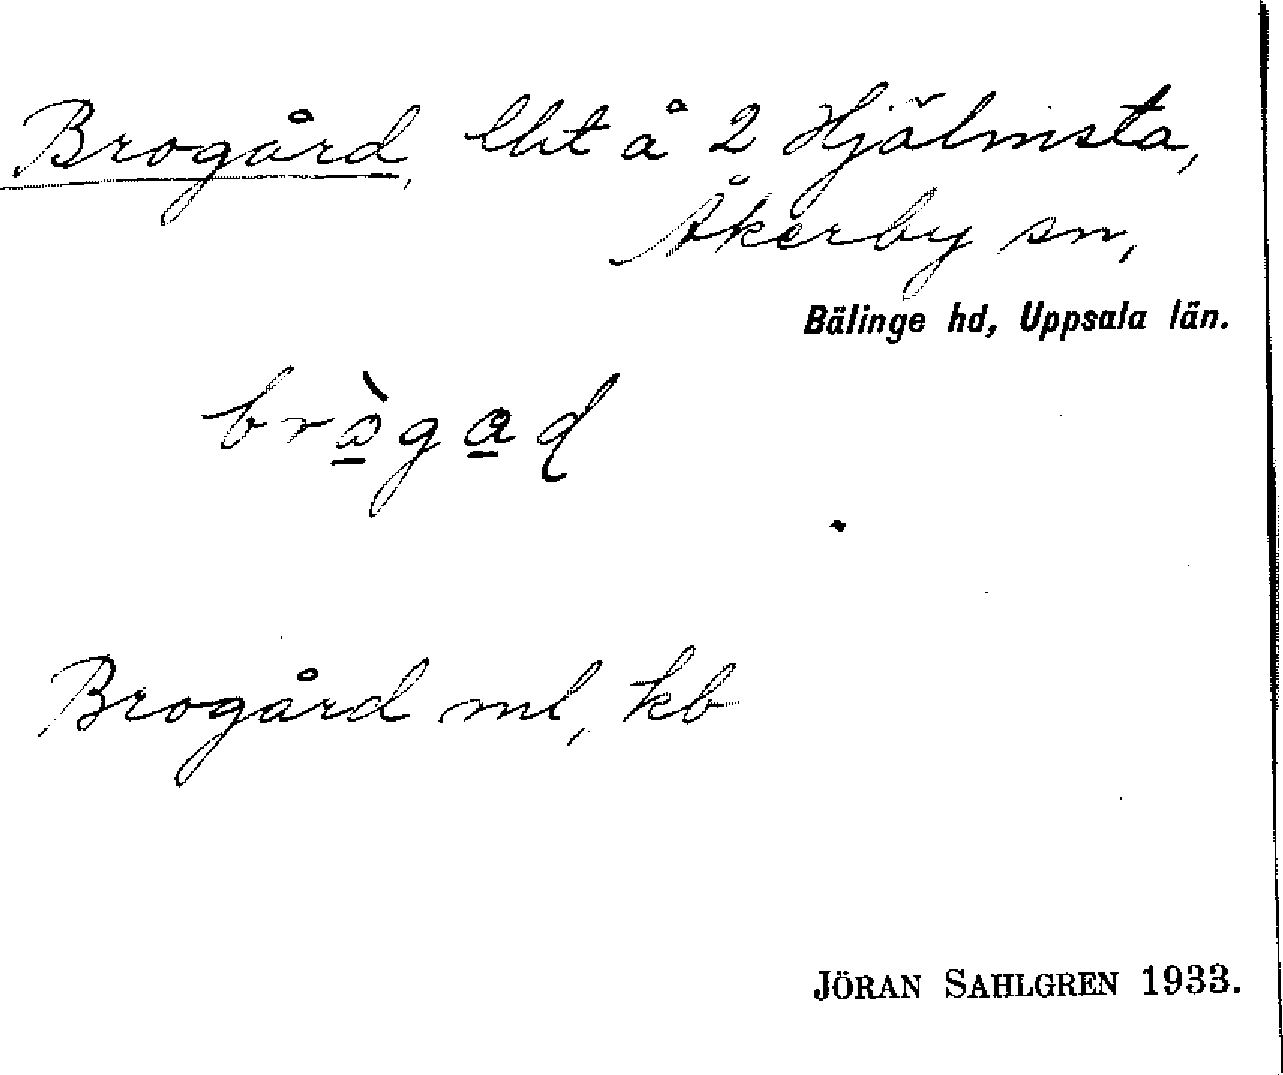 Brogård, lht å 2 Hjälmsta,
Åkerby sn,
Bälinge hd, Uppsala län.
Brogård ml, kb
JÖRAN SAHLGREN 1933.